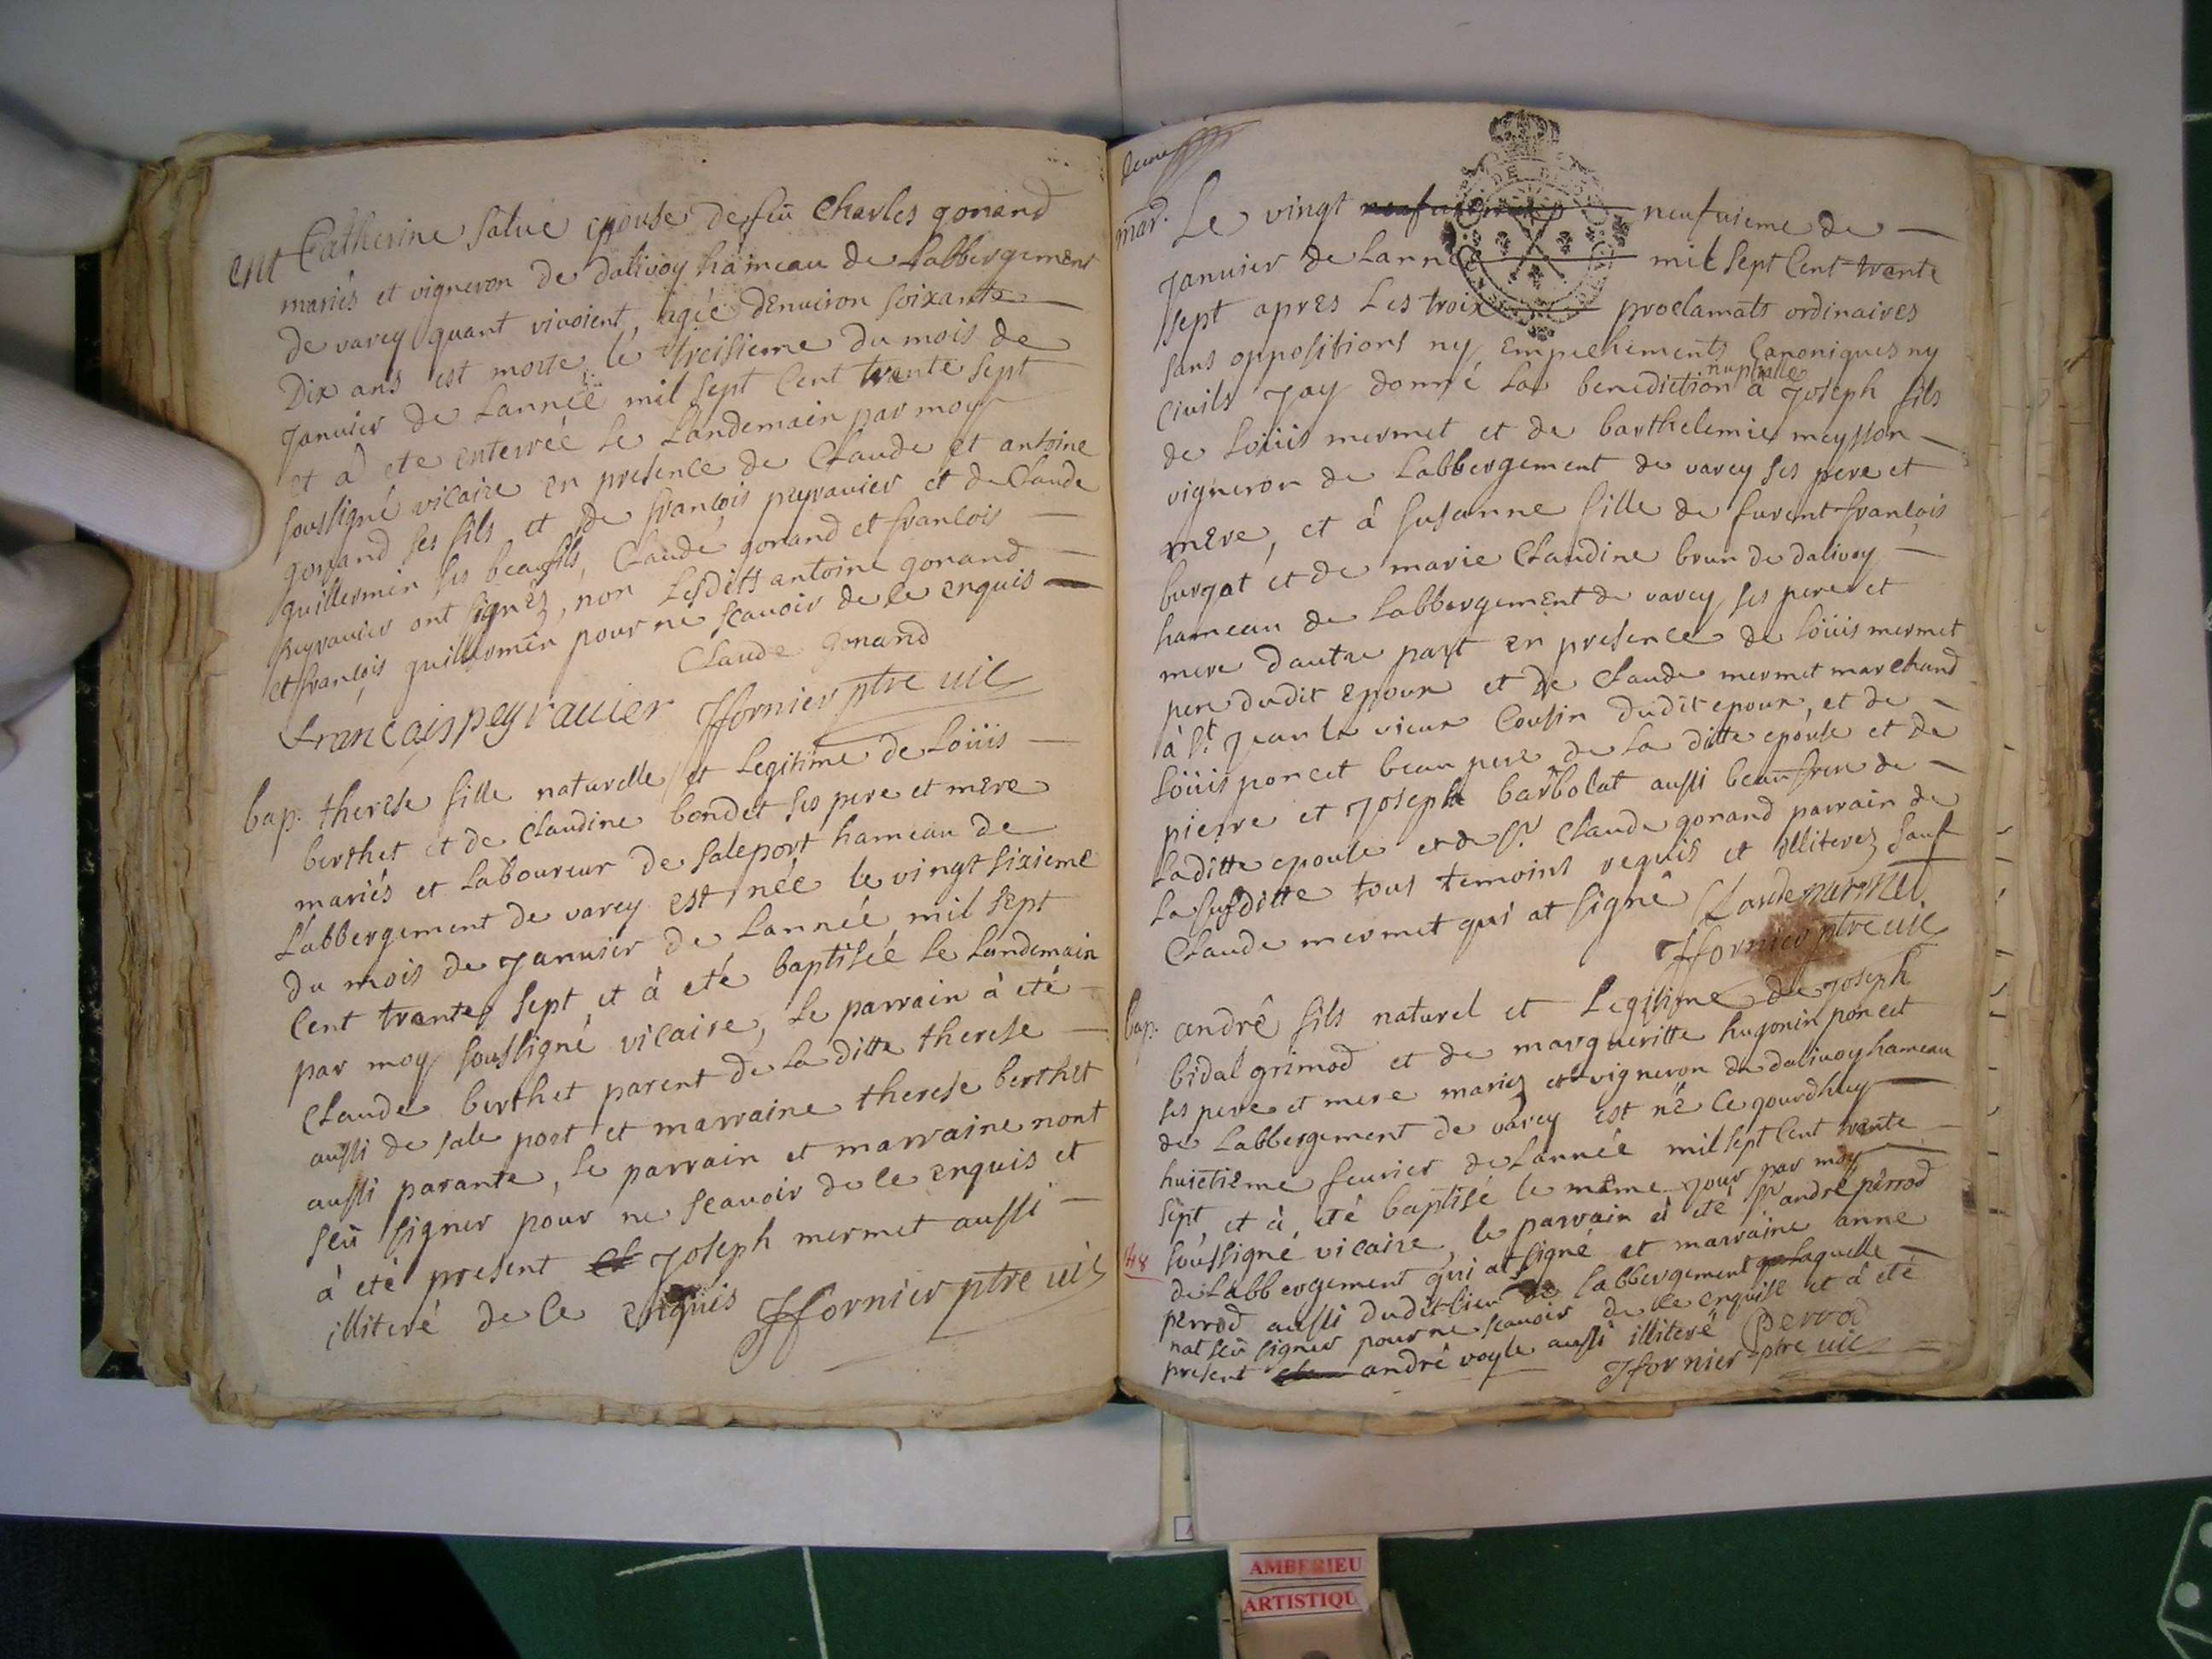 ent Catherine salue epouse de feu Charles gonand
mariés et vigneron de dalivoy hameau de Labbergement
de varey quant vivoient, agée denviron soixante
Dix ans est morte le treisieme du mois de
Janvier de Lannée mil sept Cent trente sept
et à ete enterrée Le Landemain par moy
soussigné vicaire en presence de Claude et antoine
gonand ses fils et de francois peyravier et de Claude
guillermin ses beaufils, Claude gonand et francois
peyravier ont signéz, non Lesdits antoine gonand
et francois guillermin pour ne scavoir de ce enquis
Claude gonand
francois peyrauier Jfornier ptre vic
bap. therese fille naturelle et Legitime de Loüis
berthet et de Claudine bondet ses pere et mere
mariés et Laboureur de saleport hameau de
Labbergement de varey est née le vingt sixieme
du mois de Janvier de Lannée mil sept
Cent trente sept et à eté baptisée Le Landemain
par moy soussigné vicaire, Le parrain à eté
Claude berthet parent de La ditte therese
aussi de sale port et marraine therese berthet
aussi parante, Le parrain et marraine nont
seü signer pour ne scavoir de ce enquis et
à eté present Joseph mermet aussi
illiteré de ce enquis Jfornier ptre vic
mar. Le vingt neufvieme de
Janvier de Lannée mil sept Cent trente
sept apres Les trois proclamats ordinaires
sans oppositions ny empechements Canoniques ny
nuptialle
Civils Jay donné La benediction à Joseph fils
de Loüis mermet et de barthelemie meysson
vigneron de Labbergement de varey ses pere et
mere, et à susanne fille de furent francois
burgat et de marie Claudine brun de dalivoy
hameau de Labbergement de varey ses pere et
mere dautre part en presence de Loüis mermet
pere dudit epoux et de Claude mermet marchand
à St. Jean le vieux Cousin dudit epoux, et de
Loüis poncet beau pere de La ditte epouse et de
pierre et Joseph barbolat aussi beaufrere de
Laditte epouse et de Sr. Claude gonand parrain de
La susditte tous temoins requis et illiterez sauf
Claude mermet qui at signé Claude mermet
Jfornier ptre vic
bap. andrê fils naturel et Legitime de Joseph
bidal grimod et de margueritte hugonin poncet
ses pere et mere mariez et vigneron de dalivoy hameau
de Labbergement de varey est né Ce jourdhuy
huictieme fevrier de Lannée mil sept Cent trente
sept, et à eté baptisé le même jour par moy
soussigné vicaire, le parrain à eté Sr andré perrod
de Labbergement qui at signé et marraine anne
perrod aussi dudit lieu de Labbergement Laquelle
nat seü signer pour ne scavoir de ce enquise et à eté
present andré voyle aussi illiteré Perrod
Jfornier ptre vic
148
AMBERIEU
ARTISTIQU